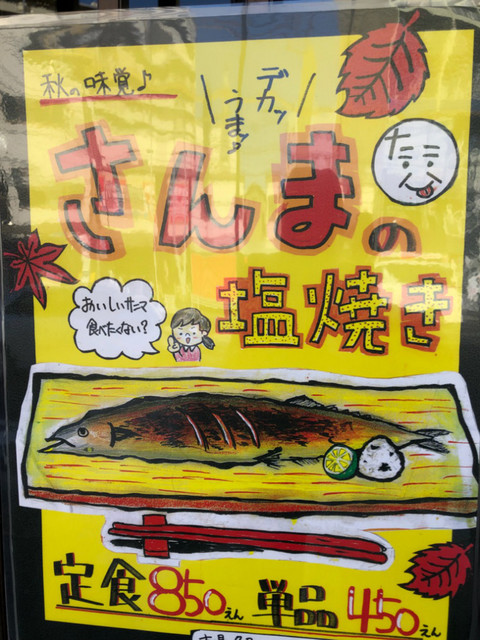 秋の味覚♪
デカッ
うまっ
さんまの
塩焼き
おいしいサンマ
食べたくない?
定食850えん 単品450えん